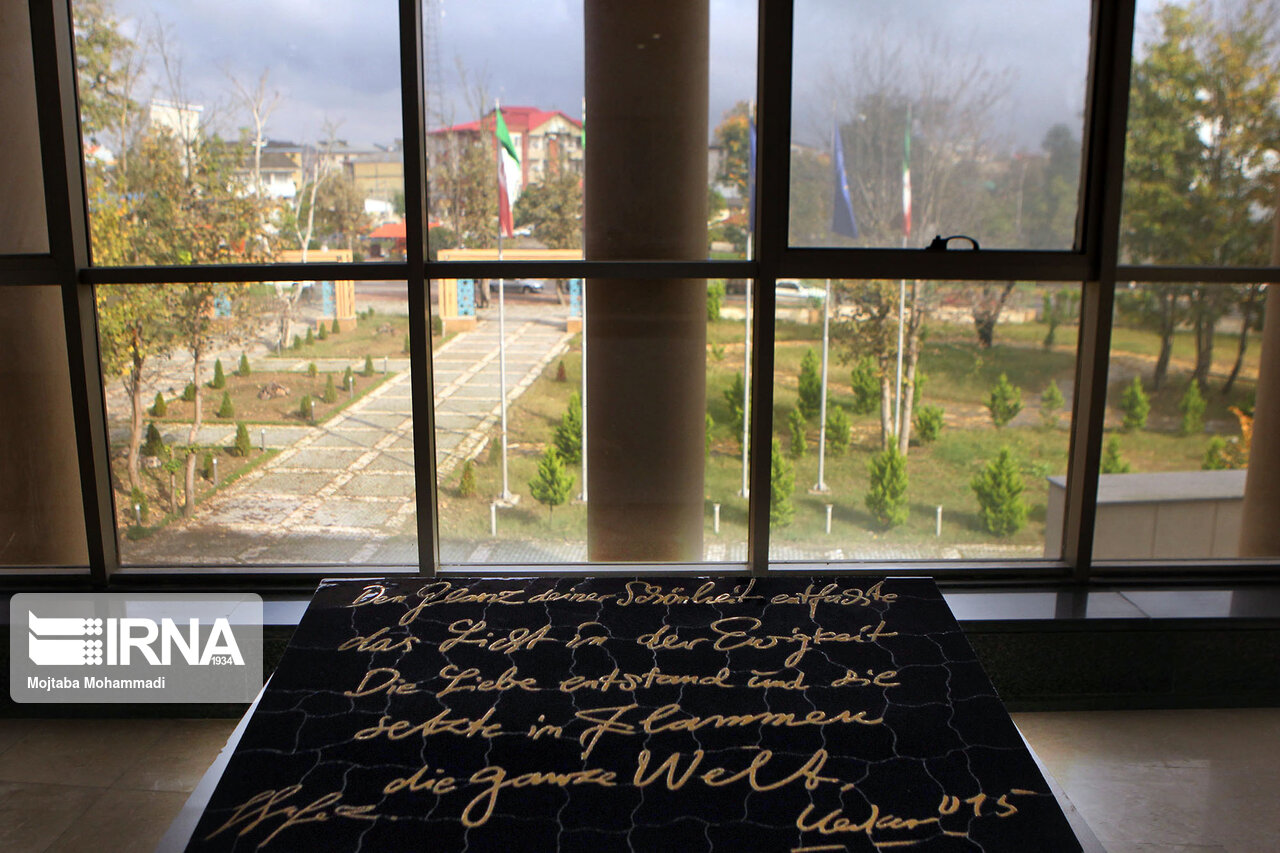 Den Glanz deiner Schönheit entfachte
das Licht in der Ewigkeit
Die Liebe entstand und die
setzte in Flammen
die ganze Welt.
Hafez.
015
IRNA
1934
Mojtaba Mohammadi